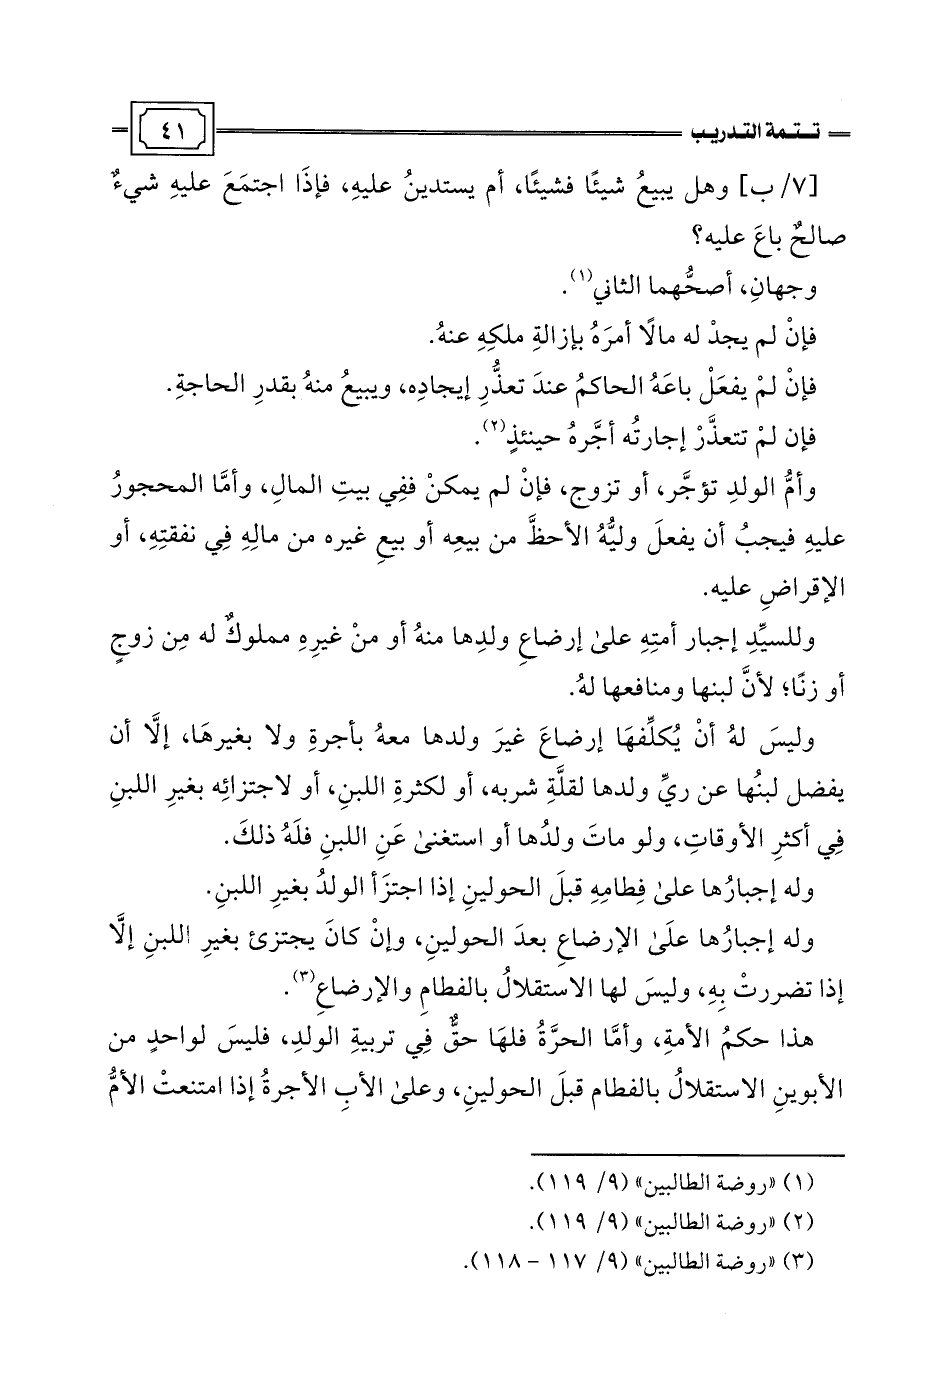 تتمة التدريب
٤١
[٧/ ب] وهل يبيعُ شيئًا فشيئًا، أم يستدينُ عليهِ، فإذَا اجتمَعَ عليهِ شيءٌ
صالحٌ باعَ عليه؟
وجهانِ، أصحُّهما الثاني(١).
فإنْ لم يجدْ له مالًا أمرَهُ بإزالةِ ملكِهِ عنهُ.
فإنْ لمْ يفعَلْ باعَهُ الحاكمُ عندَ تعذُّرِ إيجادِه، ويبيعُ منهُ بقدرِ الحاجةِ.
فإن لمْ تتعذَّرْ إجارتُه أجَّرهُ حينئذٍ(٢).
وأمُّ الولدِ تؤجَّر، أو تزوج، فإنْ لم يمكنْ ففِي بيتِ المالِ، وأمَّا المحجورُ
عليهِ فيجبُ أن يفعلَ وليُّهُ الأحظَّ من بيعِه أو بيعِ غيره من مالِهِ فِي نفقتِهِ، أو
الإقراضِ عليه.
وللسيِّدِ إجبار أمتِهِ علىٰ إرضاعِ ولدِها منهُ أو منْ غيرِهِ مملوكٌ له مِن زوجٍ
أو زنًا؛ لأنَّ لبنها ومنافعها لهُ.
وليسَ لهُ أنْ يُكلِّفهَا إرضاعَ غيرَ ولدها معهُ بأجرةِ ولا بغيرهَا، إلَّا أن
يفضل لبنُها عن ريِّ ولدها لقلَّةِ شربه، أو لكثرةِ اللبنِ، أو لاجتزائِه بغيرِ اللبنِ
فِي أكثرِ الأوقاتِ، ولو ماتَ ولدُها أو استغنىٰ عَنِ اللبنِ فلَهُ ذلكَ.
وله إجبارُها علىٰ فِطامِهِ قبلَ الحولينِ إذا اجتزَأ الولدُ بغيرِ اللبنِ.
وله إجبارُها علَىٰ الإرضاعِ بعدَ الحولينِ، وإنْ كانَ يجتزئ بغيرِ اللبنِ إلَّا
إذا تضررتْ بِهِ، وليسَ لها الاستقلالُ بالفطامِ والإرضاعِ(٣).
هذا حكمُ الأمةِ، وأمَّا الحرَّةُ فلهَا حقٌّ فِي تربيةِ الولدِ، فليسَ لواحدٍ من
الأبوينِ الاستقلالُ بالفطام قبلَ الحولينِ، وعلىٰ الأبِ الأجرةُ إذا امتنعتْ الأمُّ
(١) «روضة الطالبين» (٩/ ١١٩).
(٢) «روضة الطالبين» (٩/ ١١٩).
(٣) «روضة الطالبين» (٩/ ١١٧ – ١١٨).